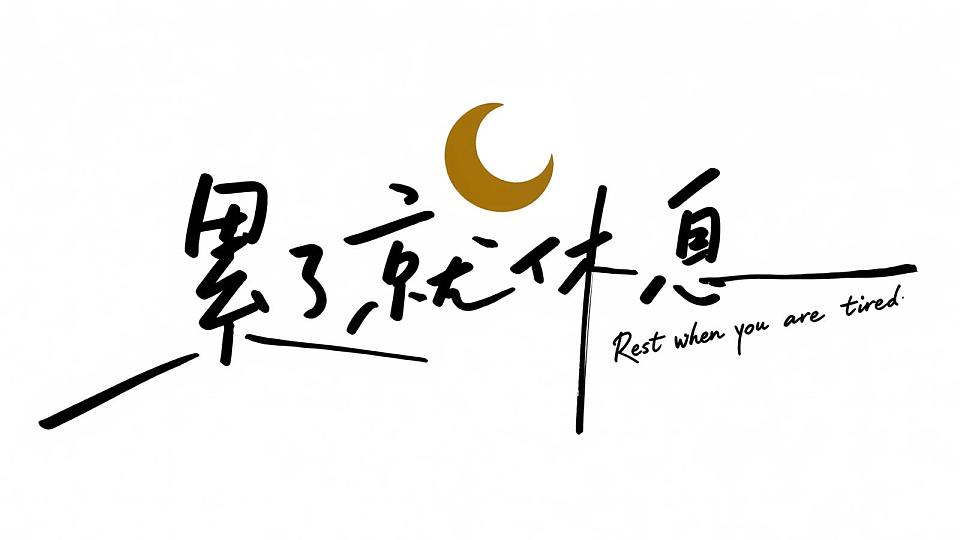 累了就休息
Rest when you are tired.